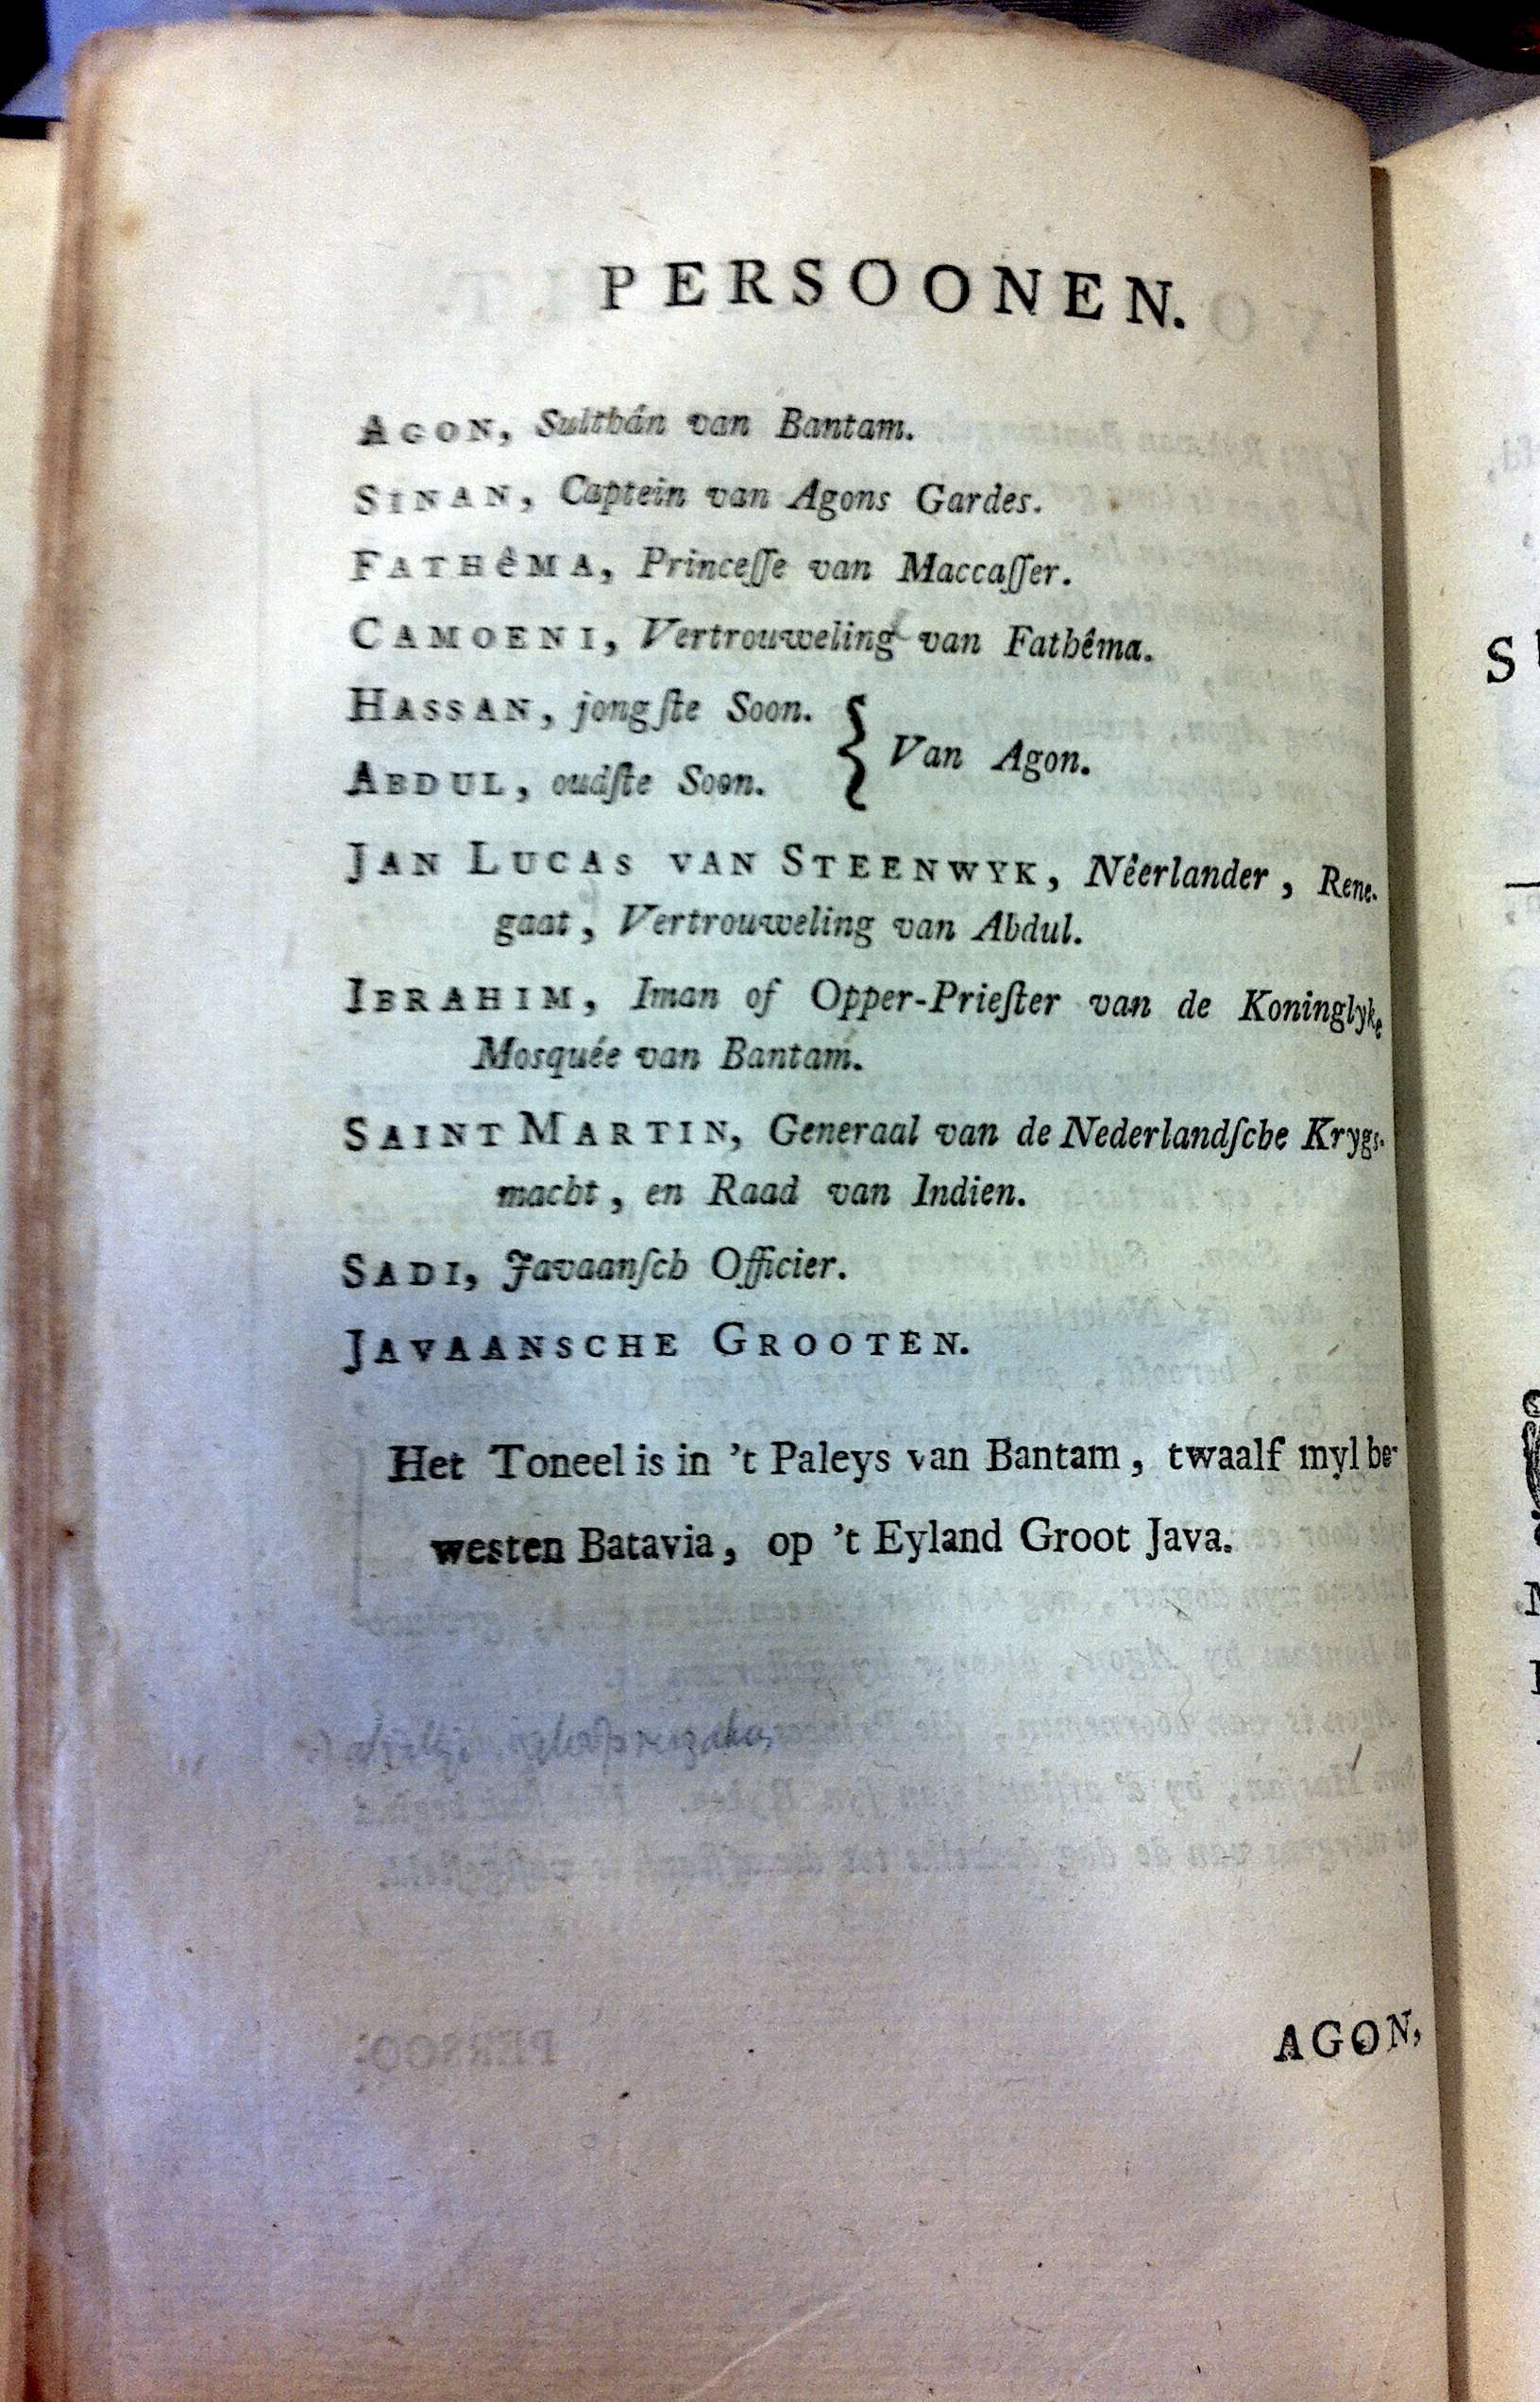 PERSOONEN.
AGON, Sulthân van Bantam.
SINAN, Captein van Agons Gardes.
FATHêMA, Princeſſe van Maccaſſer.
CAMOENI, Vertrouweling van Fathêma.
HASSAN, jongſte Soon.
ABDUL, oudſte Soon.
} Van Agon.
JAN LUCAS VAN STEENWYK, Nêerlander, Rene-
gaat, Vertrouweling van Abdul.
IBRAHIM, Iman of Opper-Prieſter van de Koninglyke
Mosquée van Bantam.
SAINT MARTIN, Generaal van de Nederlandſche Krygs-
macht, en Raad van Indien.
SADI, Javaanſch Officier.
JAVAANSCHE GROOTEN.
Het Toneel is in 't Paleys van Bantam, twaalf myl be-
westen Batavia, op 't Eyland Groot Java.
AGON,